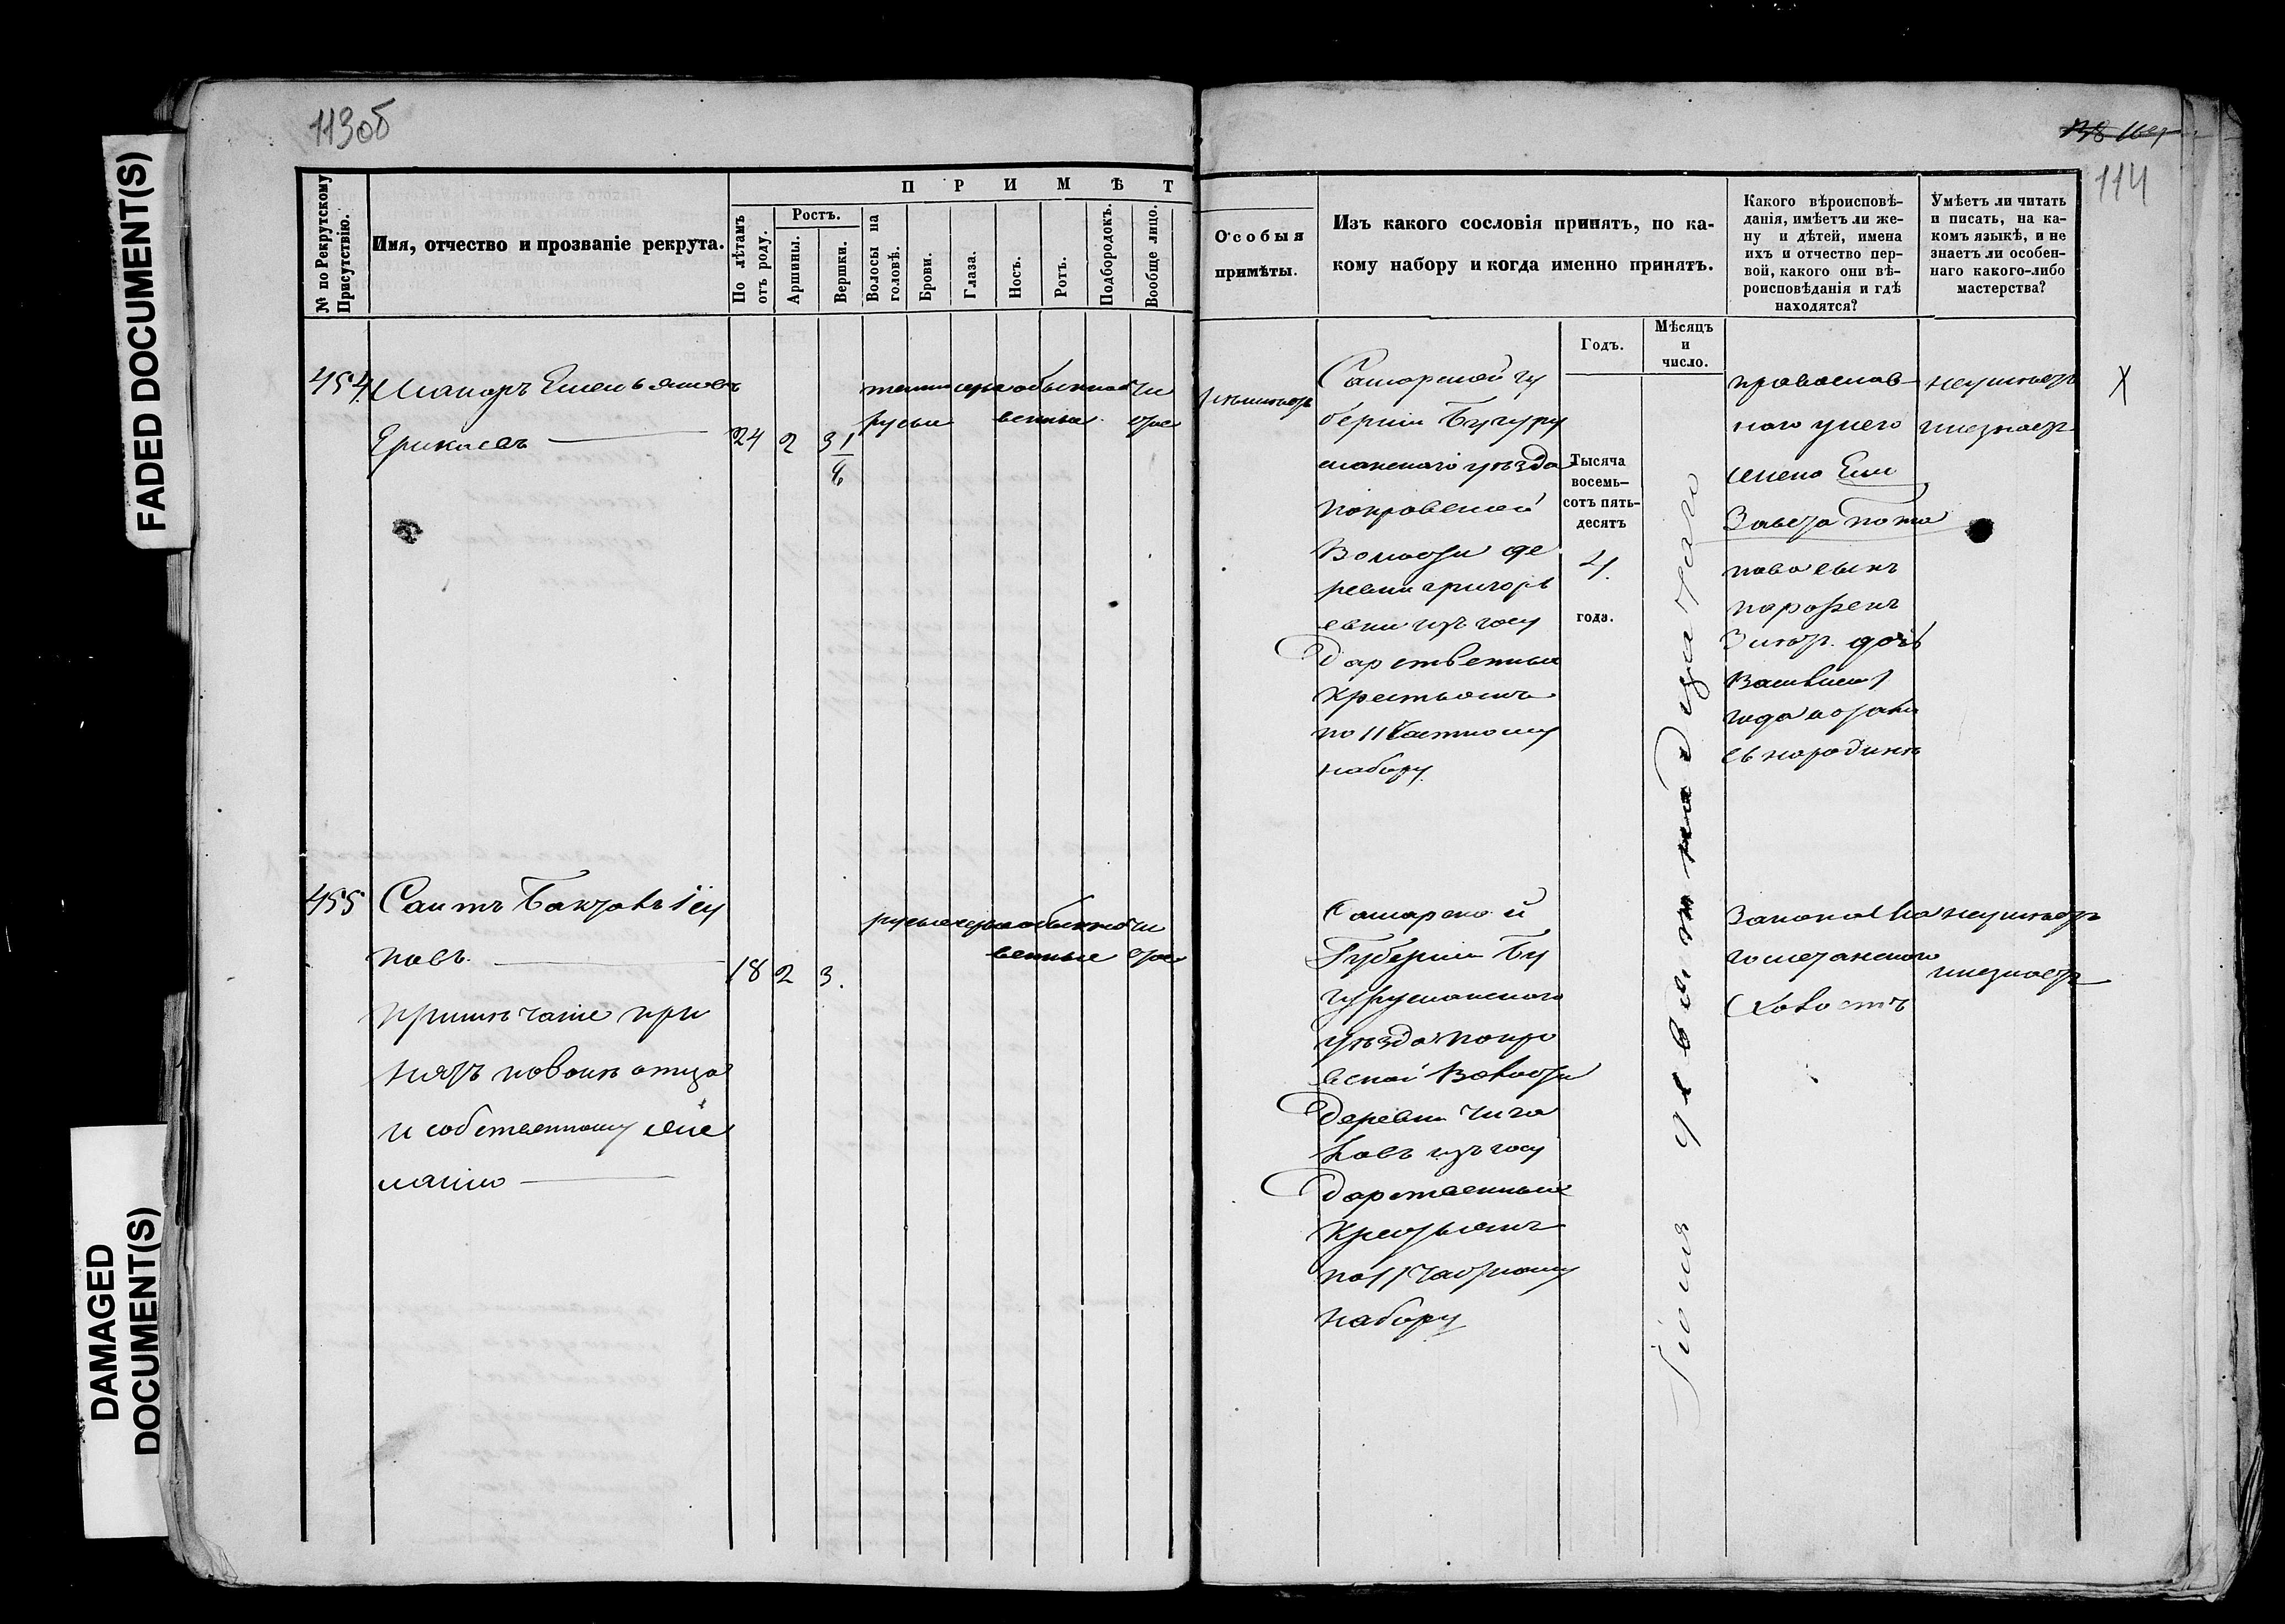 FADED DOCUMENT(S)
DAMAGED
DOCUMENT(S)
113об
114
№ по Рекрутскому
Присутствію.
Имя, отчество и прозваніе рекрута.
П Р И М Ѣ Т
По лѣтамъ
отъ роду.
Ростъ.
Аршины.
Вершки.
Волосы на
головѣ.
Брови.
Глаза.
Носъ.
Ротъ.
Подбородокъ.
Вообще лицо.
Особыя
примѣты.
Изъ какого сословія принятъ, по ка-
кому набору и когда именно принятъ.
Какого вѣроисповѣ-
данія, имѣетъ ли же-
ну и дѣтей, имена
ихъ и отчество пер-
вой, какого они вѣ-
роисповѣданія и гдѣ
находятся?
Умѣетъ ли читать
и писать, на ка-
комъ языкѣ, и не
знаетъ ли особен-
наго какого-либо
мастерства?
Годъ.
Мѣсяцъ
и
число.
454. Макаръ Емельяновъ
24 2 3 1/8
темно
русые
сѣрые
обыкно
венные
чи
стое
неимѣетъ
Самарской гу
берніи Бугуру
сланскаго уѣзда
Покровской
Волости де
ревни Григорь
евки изъ госу
Дарственныхъ
Крестьянъ
по 11 Частному
набору
Тысяча
восемь-
сотъ пять-
десятъ
4.
года.
Іюня девятнадцатаго
православ
наго у него
жена Ели
Завета
сынъ
дочь
года
на родинѣ
неумѣетъ
инезнаетъ
X
455 Саитъ
повъ.
18 2 3.
примѣчаніе при
нятъ по волѣ отца
и собственному же
ланію
русые
сѣрые
обыкно
венные
чи
стое
Самарской
Губерніи Бу
гурусланского
уѣзда Покро
вской Волости
Деревни
изъ госу
Дарственныхъ
Крестьянъ
по 11 Частному
набору
Закона Ма
гометанского
Холостъ
неумѣетъ
инезнаетъ